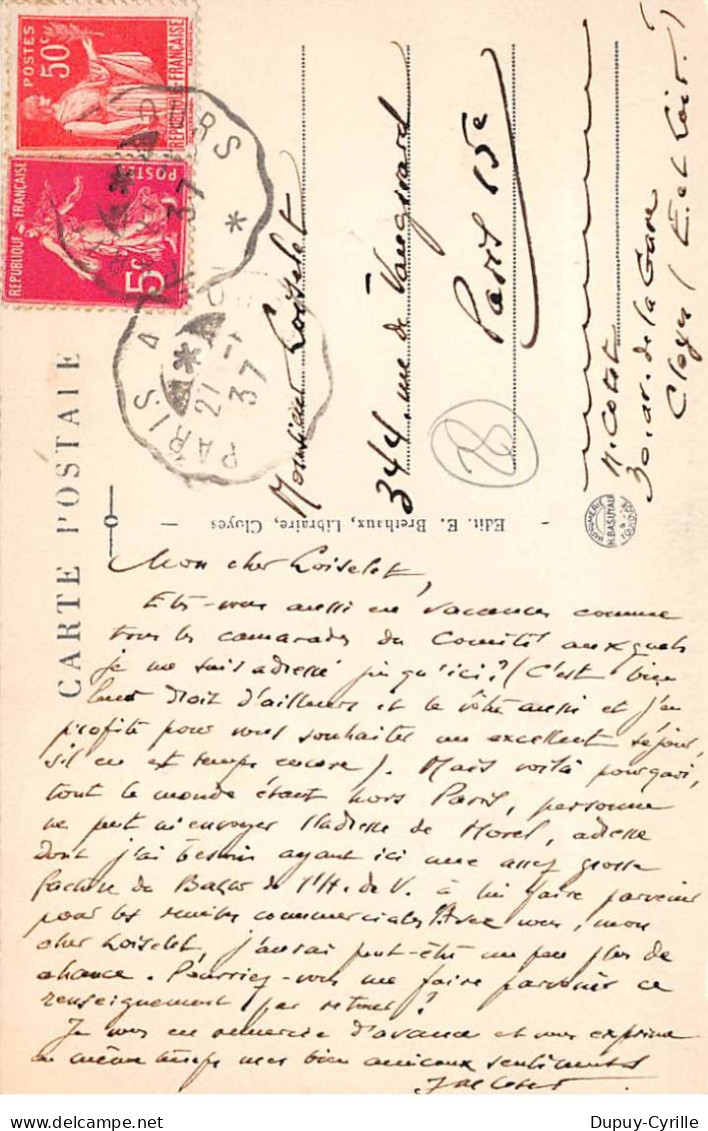 POSTES
50c
REPUBLIQUE FRANÇAISE
REPUBLIQUE FRANÇAISE
POSTES
5c
PARIS A
21
37
37
CARTE POSTALE
Monsieur Loiselet
344, rue de Vaugirard
Paris 15e
28
M. Cotet
30. av. de la Gare
Cloyes (E. et Loir.)
Edit. E. Brethaux, Libraire, Cloyes
IMPRIMERIE
H. BASUYAU
TOULOUSE
Mon cher Loiselet,
Etes-vous aussi en vacances comme
tous les camarades du Comité auxquels
je me suis adressé jusqu'ici ? (C'est bien
leur droit d'ailleurs et le vôtre aussi et j'en
profite pour vous souhaiter un excellent séjour,
s'il en est temps encore). Mais voilà pourquoi,
tout le monde étant hors Paris, personne
ne peut m'envoyer l'adresse de Morel, adresse
dont j'ai besoin ayant ici une assez grosse
facture du Bazar de l'H. de V. à lui faire parvenir
pour les remises commerciales. Avec vous, mon
cher Loiselet, j'aurai peut-être un peu plus de
chance. Pourriez-vous me faire parvenir ce
renseignement par retour ?
Je vous en remercie d'avance et vous exprime
en même temps mes bien amicaux sentiments
Dupuy-Cyrille